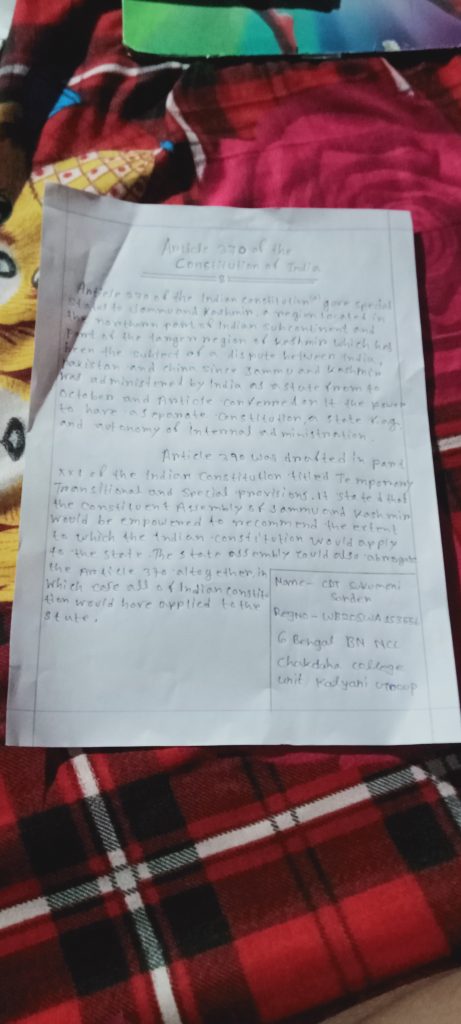 Article 370 of the
Constitution of India
Article 370 of the Indian constitution gave special
status to Jammu and Kashmir, a region located in
the northern part of Indian subcontinent and
part of the larger region of Kashmir which has
been the subject of a dispute between India,
Pakistan and China since Jammu and Kashmir
was administered by India as a state from 17
October and Article conferred on it the power
to have a separate constitution, a state flag
and autonomy of internal administration.
Article 370 was drafted in part
XXI of the Indian Constitution titled Temporary
Transitional and Special provisions. It stated that
the Constituent Assembly of Jammu and Kashmir
would be empowered to recommend the extent
to which the Indian constitution would apply
to the state. The state assembly could also abrogate
the Article 370 altogether, in
which case all of Indian constitu-
tion would have applied to the
state.
Name- CDT
Sarder
Regno-
6 Bengal BN NCC
Chakdaha college
unit, Kalyani Group